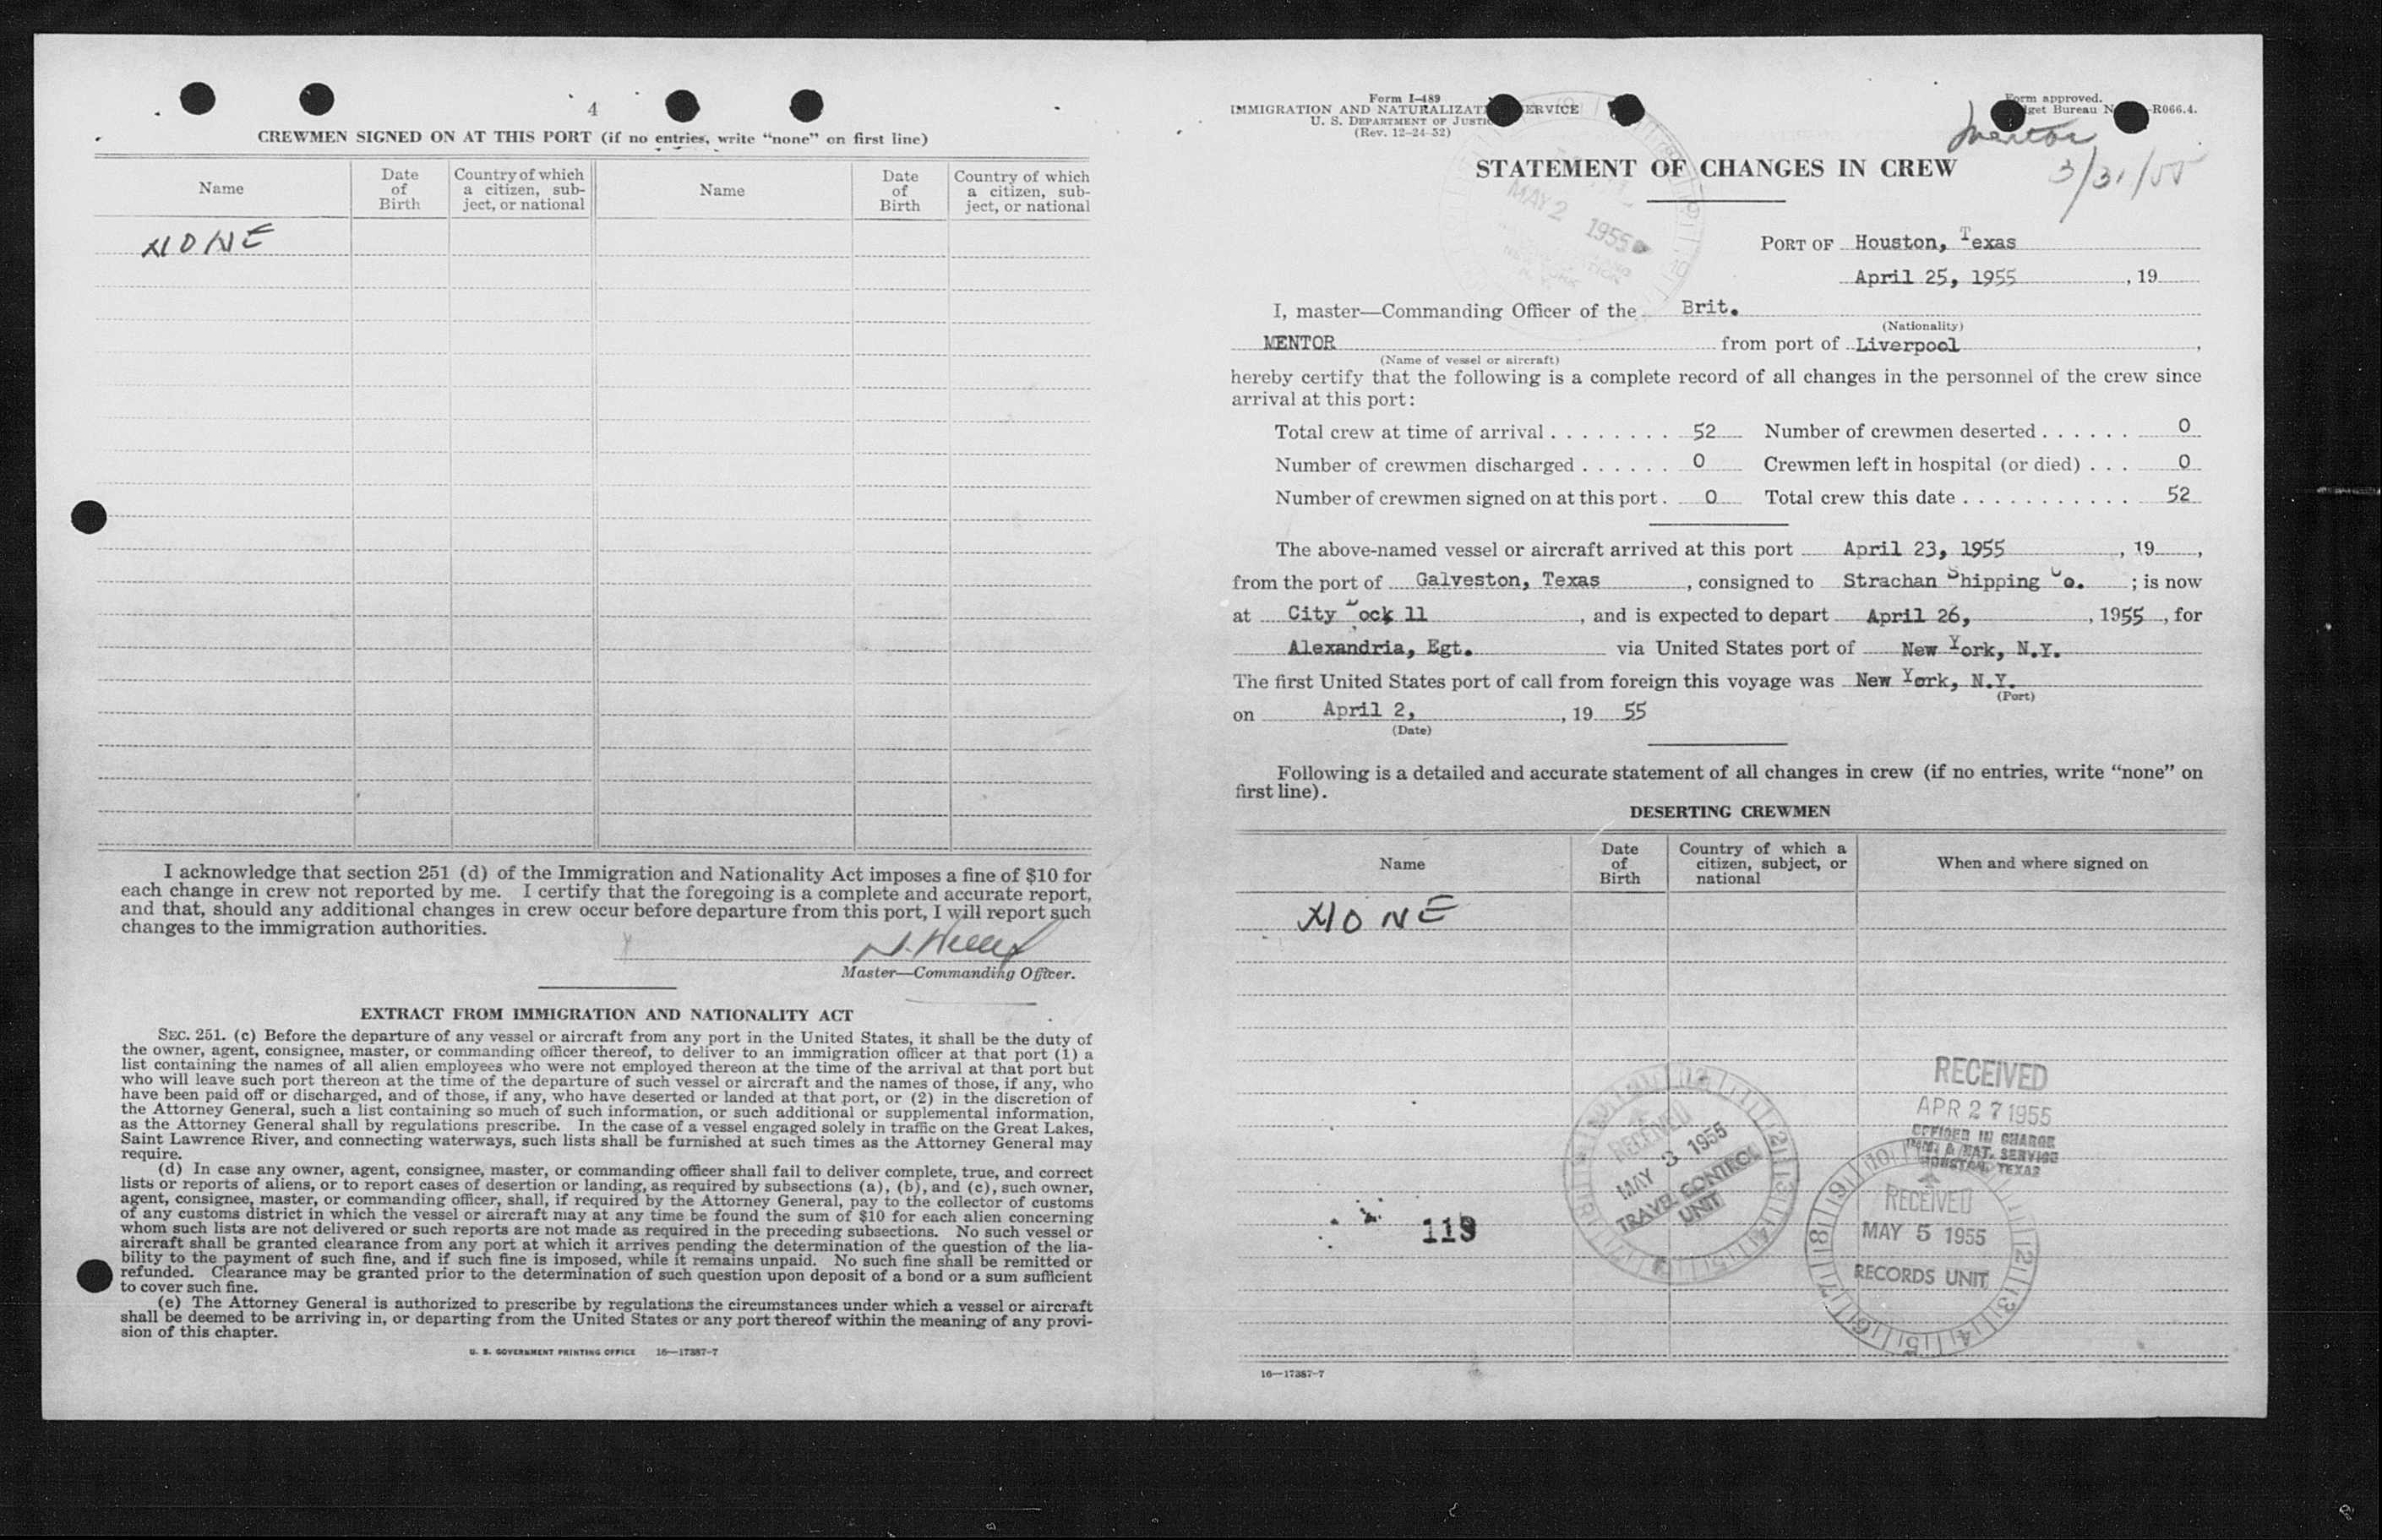 4
CREWMEN SIGNED ON AT THIS PORT (if no entries, write “none” on first line)
Name
Date of Birth
Country of which a citizen, sub- ject, or national
Name
Date of Birth
Country of which a citizen, sub- ject, or national
NONE
I acknowledge that section 251 (d) of the Immigration and Nationality Act imposes a fine of $10 for
each change in crew not reported by me. I certify that the foregoing is a complete and accurate report,
and that, should any additional changes in crew occur before departure from this port, I will report such
changes to the immigration authorities.
Master—Commanding Officer.
EXTRACT FROM IMMIGRATION AND NATIONALITY ACT
SEC. 251. (c) Before the departure of any vessel or aircraft from any port in the United States, it shall be the duty of
the owner, agent, consignee, master, or commanding officer thereof, to deliver to an immigration officer at that port (1) a
list containing the names of all alien employees who were not employed thereon at the time of the arrival at that port but
who will leave such port thereon at the time of the departure of such vessel or aircraft and the names of those, if any, who
have been paid off or discharged, and of those, if any, who have deserted or landed at that port, or (2) in the discretion of
the Attorney General, such a list containing so much of such information, or such additional or supplemental information,
as the Attorney General shall by regulations prescribe. In the case of a vessel engaged solely in traffic on the Great Lakes,
Saint Lawrence River, and connecting waterways, such lists shall be furnished at such times as the Attorney General may
require.
(d) In case any owner, agent, consignee, master, or commanding officer shall fail to deliver complete, true, and correct
lists or reports of aliens, or to report cases of desertion or landing, as required by subsections (a), (b), and (c), such owner,
agent, consignee, master, or commanding officer, shall, if required by the Attorney General, pay to the collector of customs
of any customs district in which the vessel or aircraft may at any time be found the sum of $10 for each alien concerning
whom such lists are not delivered or such reports are not made as required in the preceding subsections. No such vessel or
aircraft shall be granted clearance from any port at which it arrives pending the determination of the question of the lia-
bility to the payment of such fine, and if such fine is imposed, while it remains unpaid. No such fine shall be remitted or
refunded. Clearance may be granted prior to the determination of such question upon deposit of a bond or a sum sufficient
to cover such fine.
(e) The Attorney General is authorized to prescribe by regulations the circumstances under which a vessel or aircraft
shall be deemed to be arriving in, or departing from the United States or any port thereof within the meaning of any provi-
sion of this chapter.
U. S. GOVERNMENT PRINTING OFFICE 16—17387-7
Form I-489
IMMIGRATION AND NATURALIZATI SERVICE
U. S. DEPARTMENT OF JUSTIC
(Rev. 12-24-52)
Form approved.
get Bureau N -R066.4.
Mentor
3/31/55
STATEMENT OF CHANGES IN CREW
MAY 2 1955
PORT OF Houston, Texas
April 25, 1955 , 19
I, master—Commanding Officer of the Brit.
(Nationality)
MENTOR from port of Liverpool ,
(Name of vessel or aircraft)
hereby certify that the following is a complete record of all changes in the personnel of the crew since
arrival at this port:
Total crew at time of arrival . . . . . . . . 52 Number of crewmen deserted . . . . . . 0
Number of crewmen discharged . . . . . . 0 Crewmen left in hospital (or died) . . . 0
Number of crewmen signed on at this port . 0 Total crew this date . . . . . . . . . . . 52
The above-named vessel or aircraft arrived at this port April 23, 1955 , 19 ,
from the port of Galveston, Texas , consigned to Strachan Shipping Co. ; is now
at City Dock 11 , and is expected to depart April 26, , 1955 , for
Alexandria, Egt. via United States port of New York, N.Y.
The first United States port of call from foreign this voyage was New York, N.Y.
(Port)
on April 2, , 19 55
(Date)
Following is a detailed and accurate statement of all changes in crew (if no entries, write “none” on
first line).
DESERTING CREWMEN
Name
Date of Birth
Country of which a citizen, subject, or national
When and where signed on
NONE
RECEIVED
APR 27 1955
OFFICER IN CHARGE
IMMI & NAT. SERVICE
HOUSTON, TEXAS
RECEIVED
MAY 3 1955
TRAVEL CONTROL
UNIT
119
RECEIVED
MAY 5 1955
RECORDS UNIT
16—17387-7